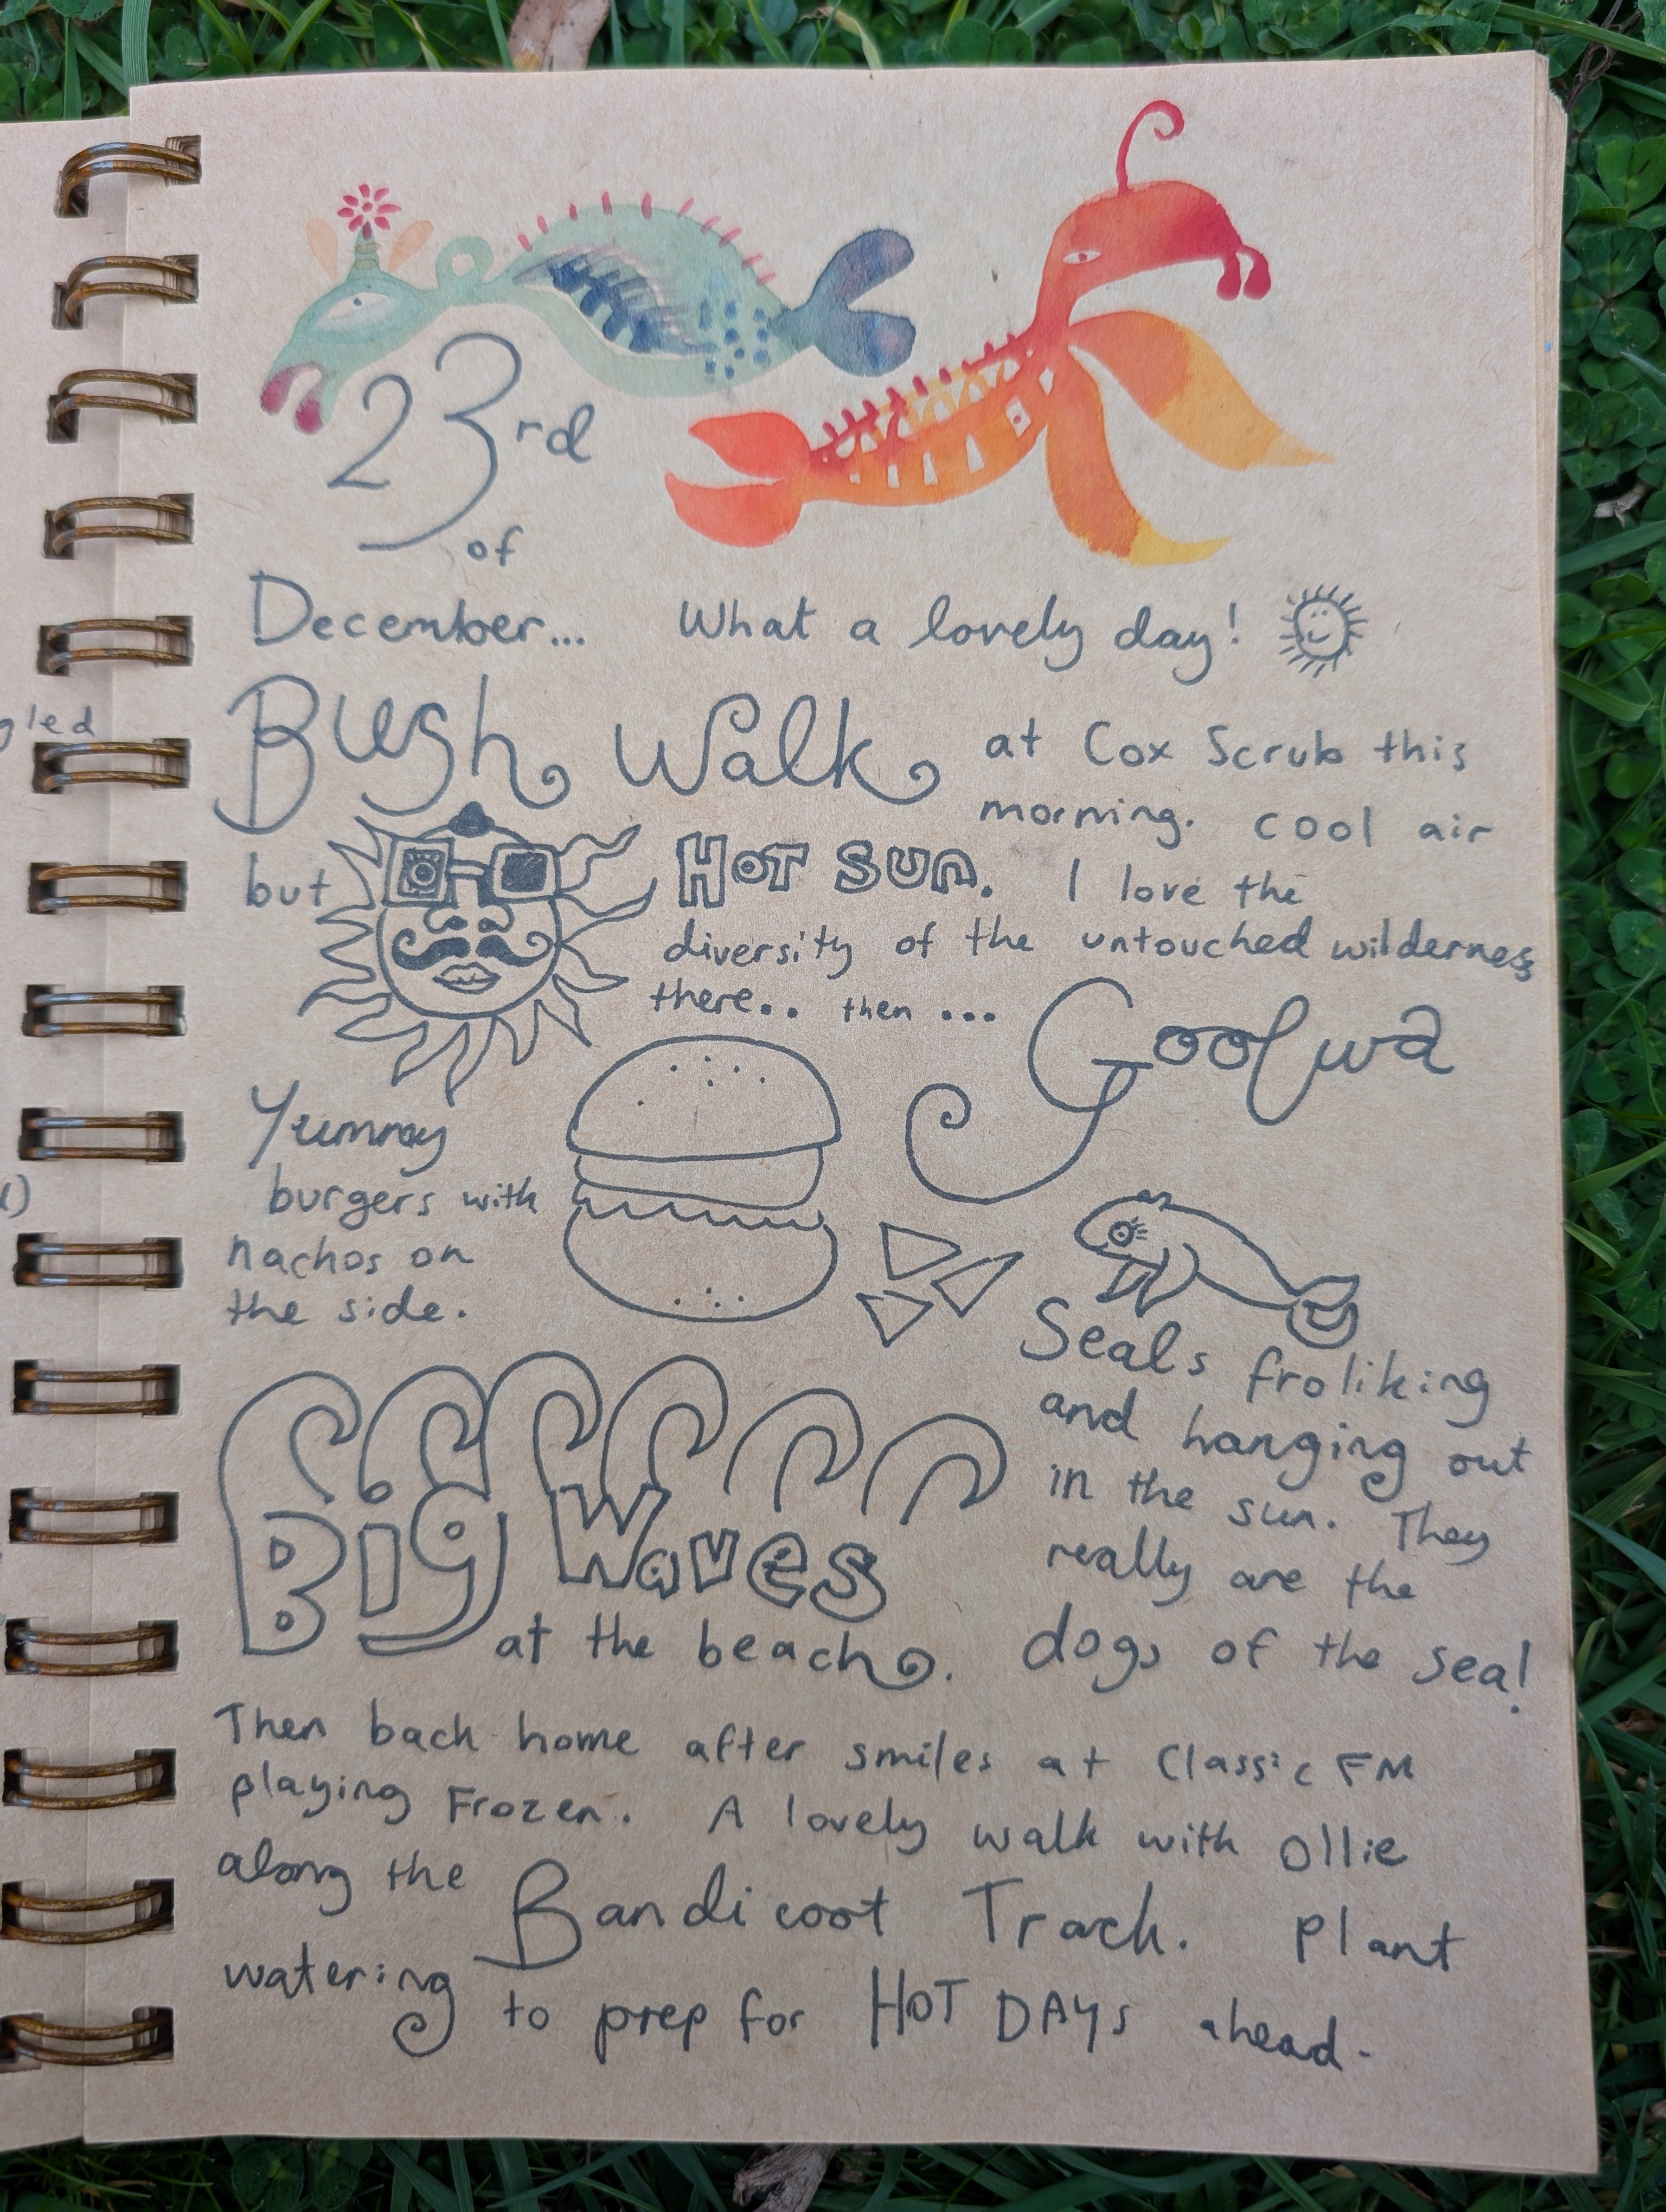 23rd
of
December... What a lovely day!
Bush Walk at Cox Scrub this
morning. cool air
but HOT SUN. I love the
diversity of the untouched wilderness
there.. then ... Goolwa
Yummy
burgers with
nachos on
the side.
Seals froliking
and hanging out
in the sun. They
really are the
dogs of the sea!
Big Waves
at the beach.
Then back home after smiles at Classic FM
playing Frozen. A lovely walk with Ollie
along the Bandicoot Track. Plant
watering to prep for HOT DAYS ahead.
gled